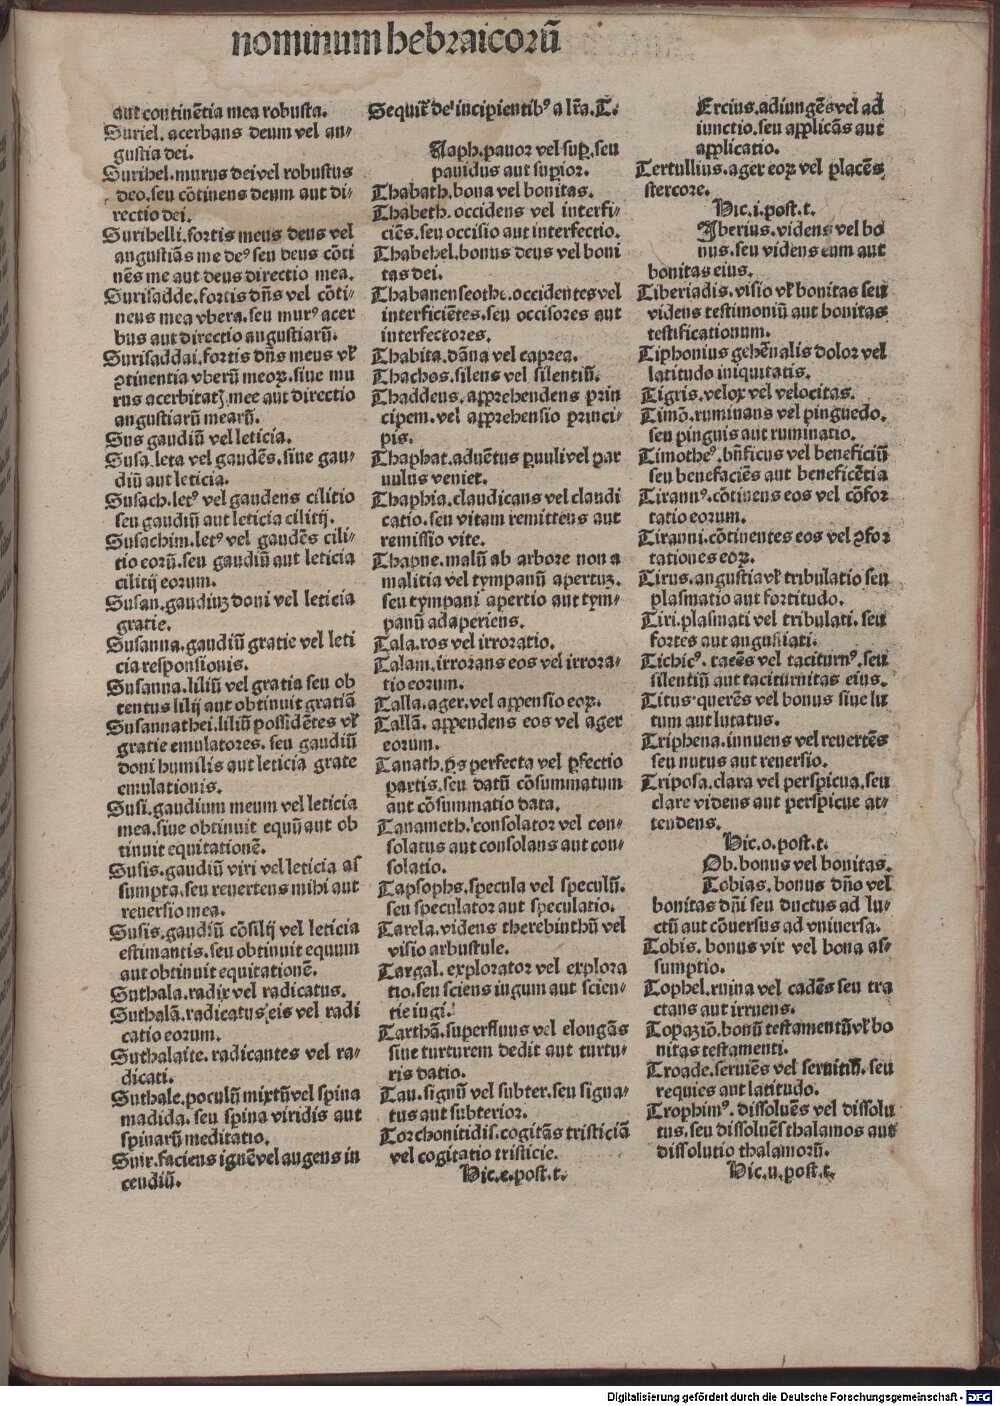 nominum hebraicorū
aut continētia mea robusta.
Suriel. acerbans deum vel an-
gustia dei.
Surihel. murus dei vel robustus
deo. seu cōtinens deum aut di-
rectio dei.
Surihelli. fortis meus deus vel
angustiās me deꝰ seu deus cōti
nēs me aut deus directio mea.
Surisadde. fortis dn̄s vel cōti-
nens mea vbera. seu murꝰ acer
bus aut directio angustiarū.
Surisaddai. fortis dn̄s meus vl̕
ꝓtinentia vberū meoꝝ. siue mu
rus acerbitatꝭ mee aut directio
angustiarū mearū.
Sus gaudiū vel leticia.
Susa. leta vel gaudēs. siue gau-
diū aut leticia.
Susach. letꝰ vel gaudens cilitio
seu gaudiū aut leticia cilitij.
Susachim. letꝰ vel gaudēs cili-
tio eorū. seu gaudiū aut leticia
cilitij eorum.
Susan. gaudiuꝫ doni vel leticia
gratie.
Susanna. gaudiū gratie vel leti
cia responsionis.
Susanna. liliū vel gratia seu ob
tentus lilij aut obtinuit gratiā
Susannathei. liliū possidētes vl̕
gratie emulatores. seu gaudiū
doni humilis aut leticia grate
emulationis.
Susi. gaudium meum vel leticia
mea. siue obtinuit equū aut ob
tinuit equitationē.
Susis. gaudiū viri vel leticia as
sumpta. seu reuertens mihi aut
reuersio mea.
Susis. gaudiū cōsilij vel leticia
estimantis. seu obtinuit equum
aut obtinuit equitationē.
Suthala. radix vel radicatus.
Suthalā. radicatus eis vel radi
catio eorum.
Suthalaite. radicantes vel ra-
dicati.
Suthale. poculū mixtū vel spina
madida. seu spina viridis aut
spinarū meditatio.
Suir. faciens ignē vel augens in
cendiū.
Sequit̕ de incipientibꝰ a lr̄a. T.
Aaph. pauor vel suꝑ. seu
pauidus aut suꝑior.
Thabath. bona vel bonitas.
Thabeth. occidens vel interfi-
ciēs. seu occisio aut interfectio.
Thabehel. bonus deus vel boni
tas dei.
Thabanenseothe. occidentes vel
interficiētes. seu occisores aut
interfectores.
Thabita. dāna vel caprea.
Thachos. silens vel silentiū.
Thaddeus. apprehendens prin
cipem. vel apprehensio princi-
pis.
Thaphat. aduētus ꝑuuli vel par
uulus veniet.
Thaphia. claudicans vel claudi
catio. seu vitam remittens aut
remissio vite.
Thapne. malū ab arbore non a
malitia vel tympanū apertuꝫ.
seu tympani apertio aut tym-
panū adaperiens.
Tala. ros vel irroratio.
Talam. irrorans eos vel irrora-
tio eorum.
Talla. ager. vel appensio eoꝝ.
Tallā. appendens eos vel ager
eorum.
Tanath. ꝑs perfecta vel ꝑfectio
partis. seu datū cōsummatum
aut cōsummatio data.
Tanameth. consolator vel con-
solatus aut consolans aut con-
solatio.
Tapsophs. specula vel speculū.
seu speculator aut speculatio.
Tarela. videns therebinthū vel
visio arbustule.
Targal. explorator vel explora
tio. seu sciens iugum aut scien-
tie iugi.
Tarthā. superfluus vel elongās
siue turturem dedit aut turtu-
ris datio.
Tau. signū vel subter. seu signa-
tus aut subterior.
Torchonitidis. cogitās tristiciā
vel cogitatio tristicie.
Hic. e. post. t.
Ercius. adiungēs vel ad
iunctio. seu applicās aut
applicatio.
Tertullius. ager eoꝝ vel placēs
stercore.
Hic. i. post. t.
Iberius. videns vel bo
nus. seu videns eum aut
bonitas eius.
Tiberiadis. visio vl̕ bonitas seu
videns testimoniū aut bonitas
testificationum.
Tiphonius gehēnalis dolor vel
latitudo iniquitatis.
Tigris. velox vel velocitas.
Timō. ruminans vel pinguedo.
seu pinguis aut ruminatio.
Timotheꝰ. bn̄ficus vel beneficiū
seu benefaciēs aut beneficētia
Tirannꝰ. cōtinens eos vel cōfor
tatio eorum.
Tiranni. cōtinentes eos vel ꝯfor
tationes eoꝝ.
Tirus. angustia vl̕ tribulatio seu
plasmatio aut fortitudo.
Tiri. plasmati vel tribulati. seu
fortes aut angustiati.
Tichicꝰ. tacēs vel taciturnꝰ. seu
silentiū aut taciturnitas eius.
Titus. querēs vel bonus siue lu
tum aut lutatus.
Triphena. innuens vel reuertēs
seu nutus aut reuersio.
Triposa. clara vel perspicua. seu
clare videns aut perspicue at-
tendens.
Hic. o. post. t.
Ob. bonus vel bonitas.
Tobias. bonus dn̄o vel
bonitas dn̄i seu ductus ad lu-
ctū aut cōuersus ad vniuersa.
Tobis. bonus vir vel bona as-
sumptio.
Tophel. ruina vel cadēs seu tra
ctans aut irruens.
Topaziō. bonū testamentū vl̕ bo
nitas testamenti.
Troade. seruiēs vel seruitiū. seu
requies aut latitudo.
Trophimꝰ. dissoluēs vel dissolu
tus. seu dissoluēs thalamos aut
dissolutio thalamorū.
Hic. u. post. t.
Digitalisierung gefördert durch die Deutsche Forschungsgemeinschaft - DFG